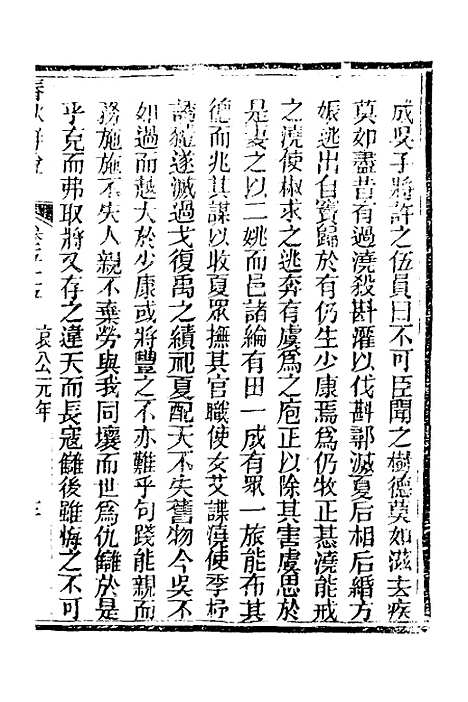 成吳子將許之伍員曰不可臣聞之樹德莫如滋去疾
莫如盡昔有過澆殺斟灌以伐斟鄩滅夏后相后緡方
娠逃出自竇歸於有仍生少康焉為仍牧正惎澆能戒
之澆使椒求之逃奔有虞為之庖正以除其害虞思於
是妻之以二姚而邑諸綸有田一成有眾一旅能布其
德而兆其謀以收夏眾撫其官職使女艾諜澆使季杼
誘豷遂滅過戈復禹之績祀夏配天不失舊物今吳不
如過而越大於少康或將豐之不亦難乎句踐能親而
務施施不失人親不棄勞與我同壤而世為仇讎於是
乎克而弗取將又存之違天而長寇讎後雖悔之不可
春秋 哀公元年